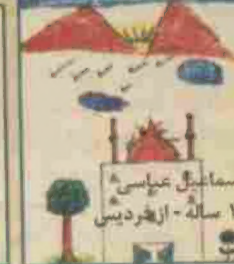 اسماعیل عباسی
ساله - از فردیس